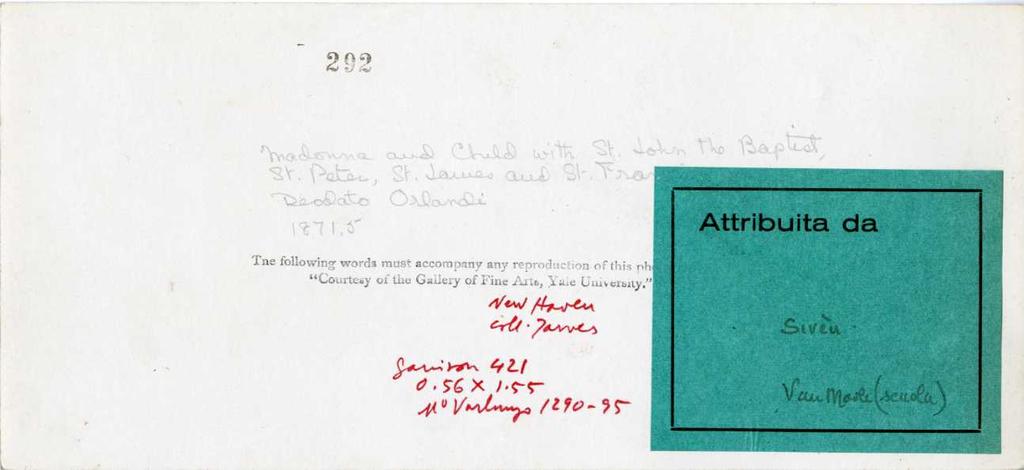 292
Madonna and Child with St. John the Baptist,
St. Peter, St. James and St. Fra
Deodato Orlandi
1871.5
The following words must accompany any reproduction of this ph
"Courtesy of the Gallery of Fine Arts, Yale University."
New Haven
Coll. Jarves
Garrison 421
0.56 X 1.55
Mo Varlungo 1290-95
Attribuita da
Sirèn
Van Marle (scuola)